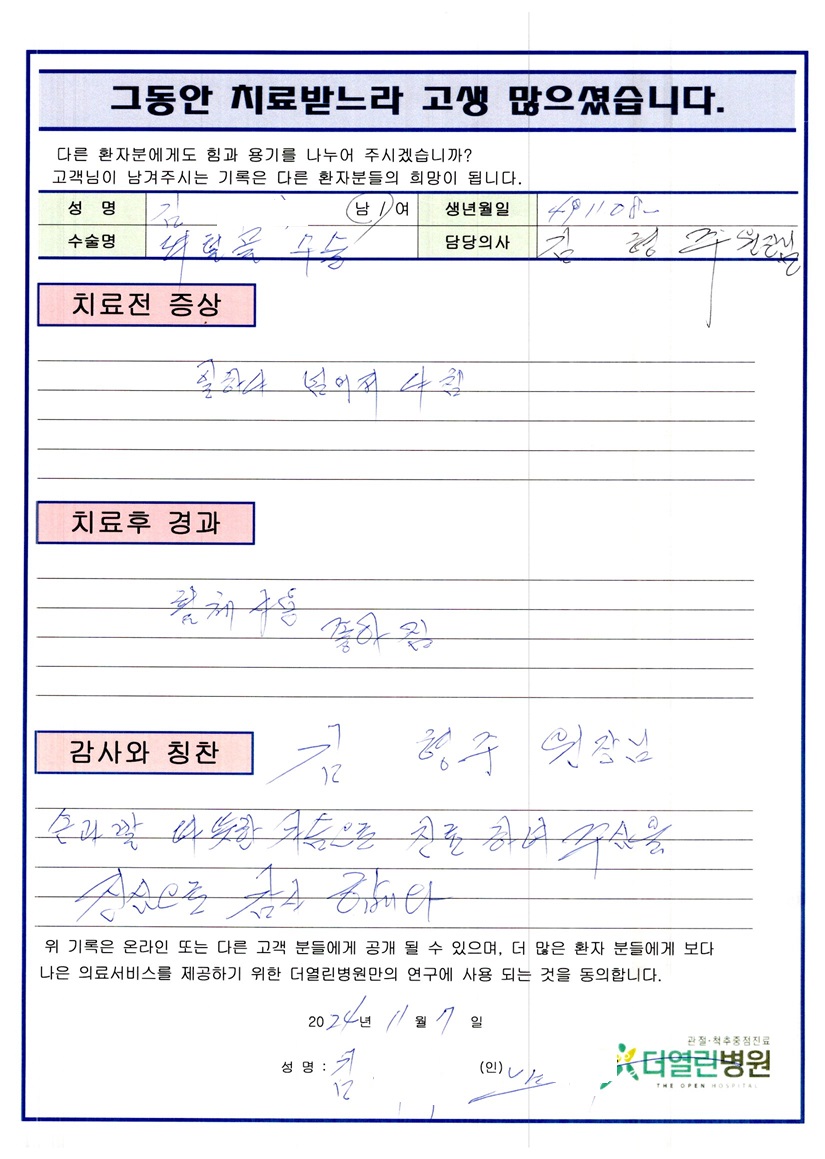 그동안 치료받느라 고생 많으셨습니다.
다른 환자분에게도 힘과 용기를 나누어 주시겠습니까?
고객님이 남겨주시는 기록은 다른 환자분들의 희망이 됩니다.
성 명 김 남 / 여 생년월일 491108~
수술명 수술 담당의사 김 형 주 원장님
치료전 증상
일하다 넘어져 다침
치료후 경과
팔체 사용
좋아짐
감사와 칭찬 김 형주 원장님
손과발 따뜻한 마음으로 진료 하여 주심을
진심으로 감사 합니다
위 기록은 온라인 또는 다른 고객 분들에게 공개 될 수 있으며, 더 많은 환자 분들에게 보다
나은 의료서비스를 제공하기 위한 더열린병원만의 연구에 사용 되는 것을 동의합니다.
2024년 11월 7일
성 명 : 김 (인)
관절·척추중점진료
더열린병원
THE OPEN HOSPITAL